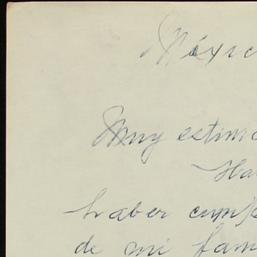 Méxic
Muy estim
Ha
haber cump
de mi fam